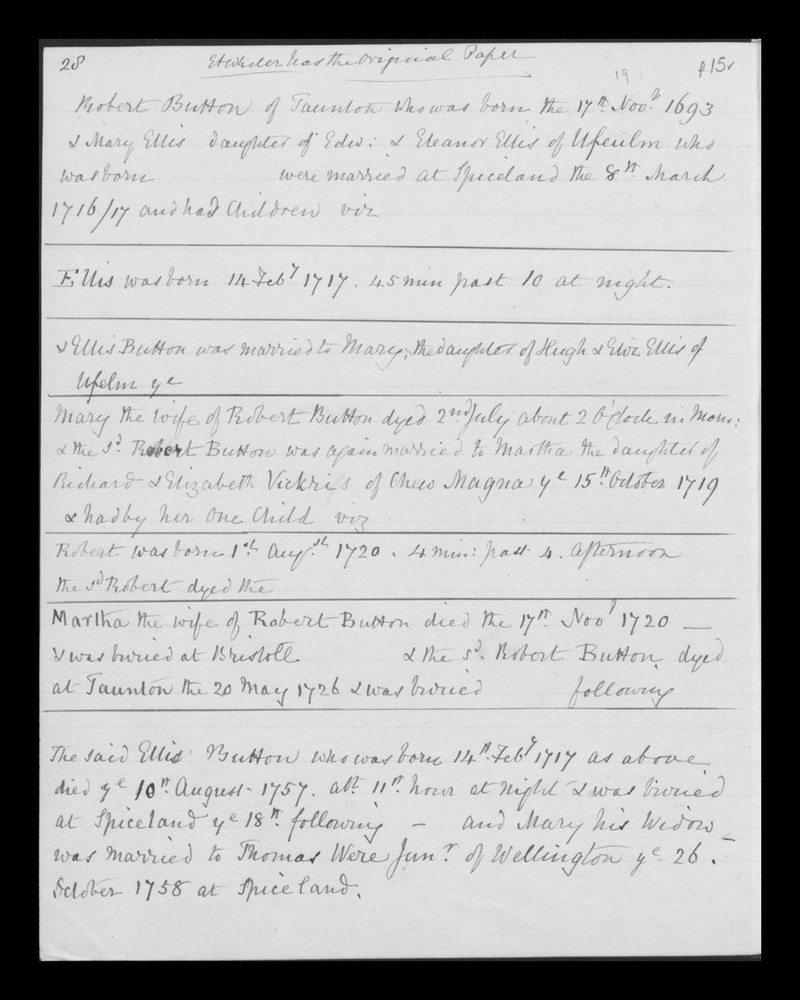 28
has the Original Paper
19
f.15r
Robert Button of Taunton who was born the 17th Novr 1693
& Mary Ellis daughter of Edw: & Eleanor Ellis of Ufculm who
was born were married at Spiceland the 8th March
1716/17 and had Children viz
Ellis was born 14 Feby 1717. 45 min past 10 at night.
& Ellis Button was married to Mary, the daughter of Hugh & Eliz. Ellis of
Ufculm ye
Mary the wife of Robert Button dyed 2nd July about 2 O'Clock in Morn:
& the sd. Robert Button was again married to Martha the daughter of
Richard & Elizabeth Vickris of Chew Magna ye 15th October 1719
& had by her One Child viz
Robert was born 1st Augst. 1720. 4 min: past 4. afternoon
the sd Robert dyed the
Martha the wife of Robert Button died the 17th Novr 1720 —
& was buried at Bristoll & the sd. Robert Button dyed
at Taunton the 20 May 1726 & was buried following
The said Ellis Button who was born 14th Feby 1717 as above
died ye 10th August 1757. abt. 11th hour at night & was buried
at Spiceland ye 18th following — and Mary his Widow
was married to Thomas Were Junr. of Wellington ye 26.
October 1758 at Spiceland.